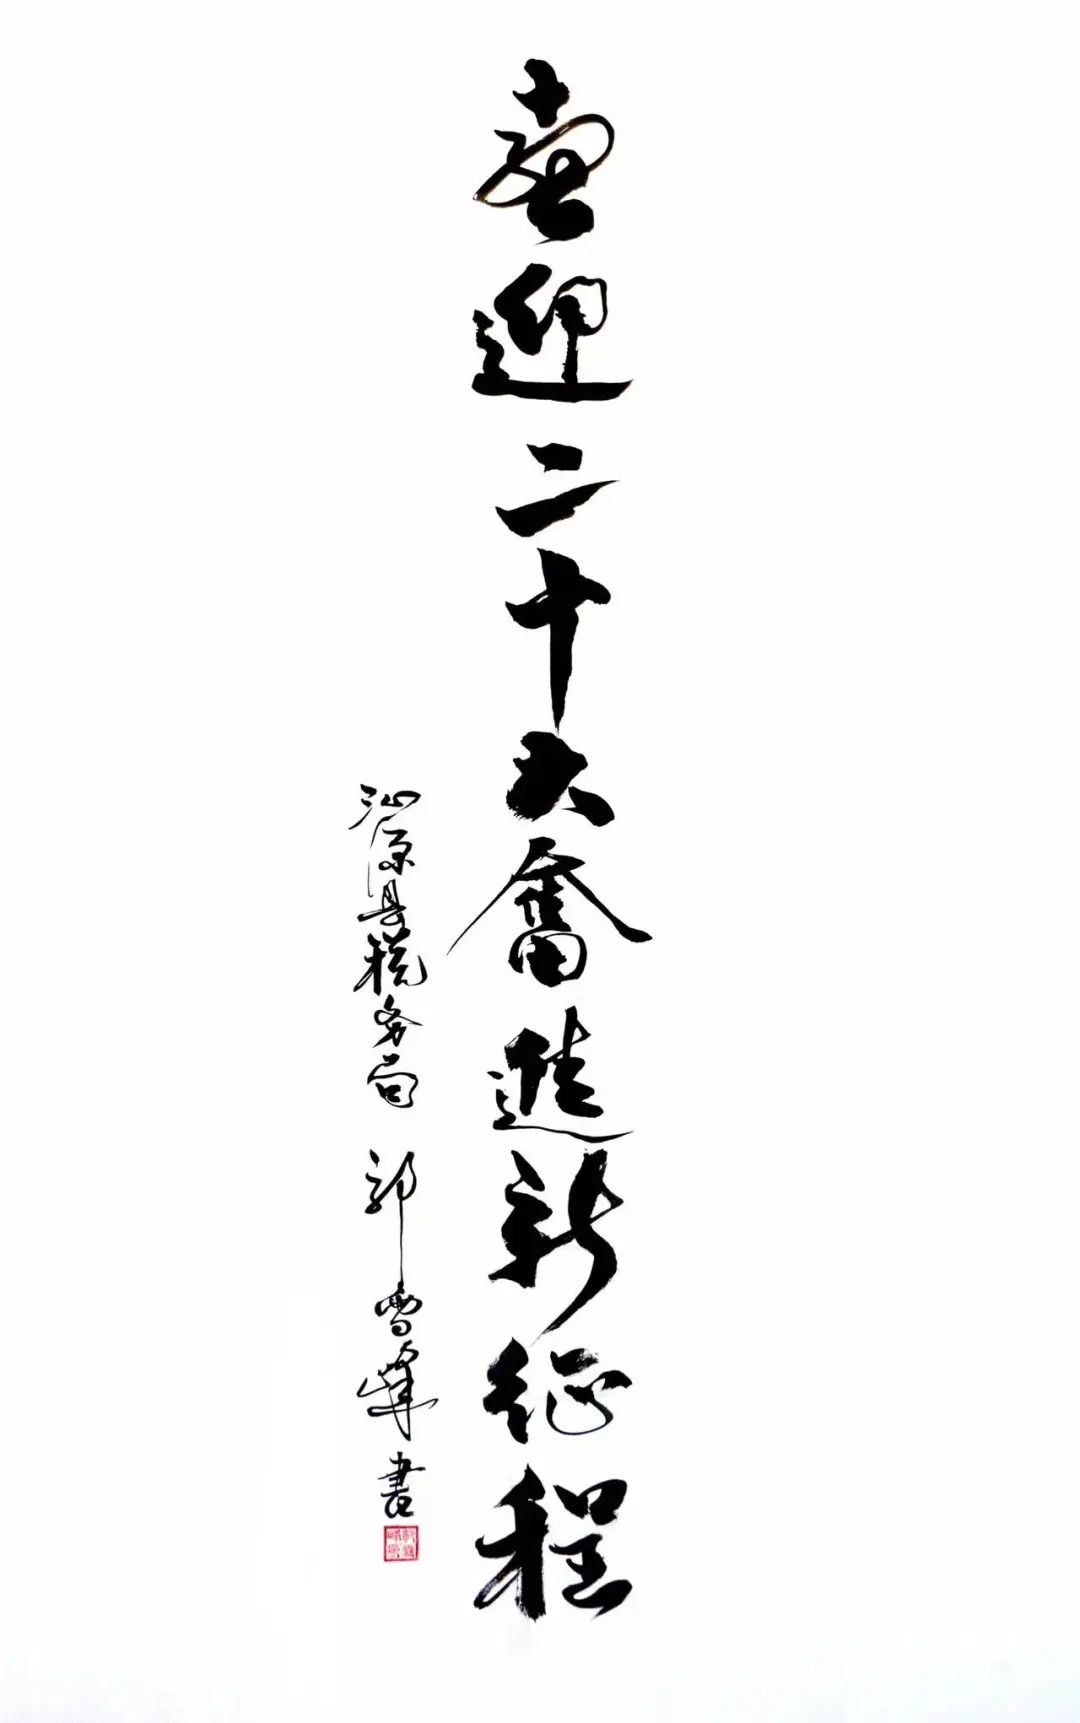 喜迎二十大奮進新征程
沁源县税务局 郭雪峰書